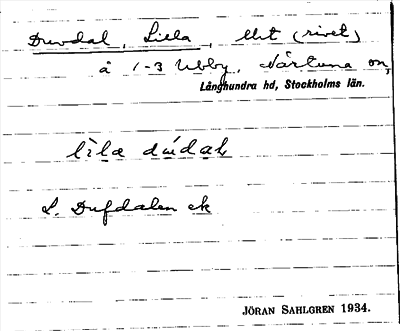 Duvdal, Lilla, lht (rivet)
å 1-3 Ubby, Närtuna sn,
Långhundra hd, Stockholms län.
lila dúdal
L. Dufdalen ek
JÖRAN SAHLGREN 1934.